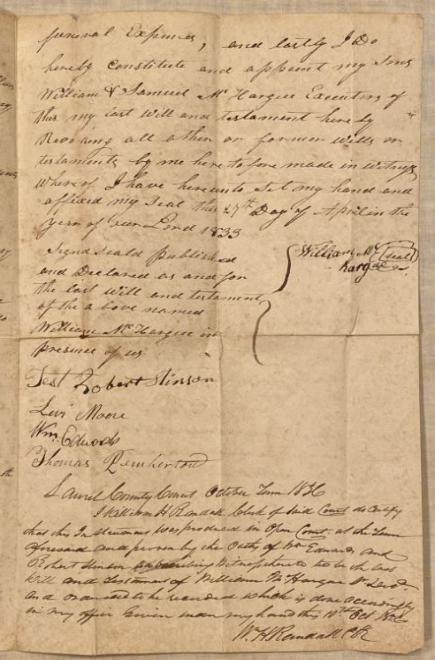 funeral Expences, and lastly I Do
hereby Constitute and appoint my Sons
William & Samuel Mc Hargue Executors of
this my last Will and testament hereby
Revoking all other or former Wills or
testaments by me here to fore made in Witness
Whereof I have hereunto Set my hand and
affixed my Seal this 27th Day of April in the
Year of our Lord 1833
Signd Seald Published
and Declared as and for
the last Will and testament
of the above named
William Mc Hargue in
presence of us
William Mc
Hargue Seal
Test Robert Stinson
Levi Moore
Wm Edwards
Thomas Pemberton
Laurel County Court October Term 1836
I William H Randall Clerk of Said Court do Certify
that this Instrument was produced in Open Court at the Term
aforesaid and proven by the Oaths of Wm Edwards and
Robert Stinson Subscribing Witnesses thereto to be the last
Will and Testament of William McHargue Decd.
and ordered to be recorded which is done accordingly
in my office Given under my hand this Oct 1836
W. H Randall